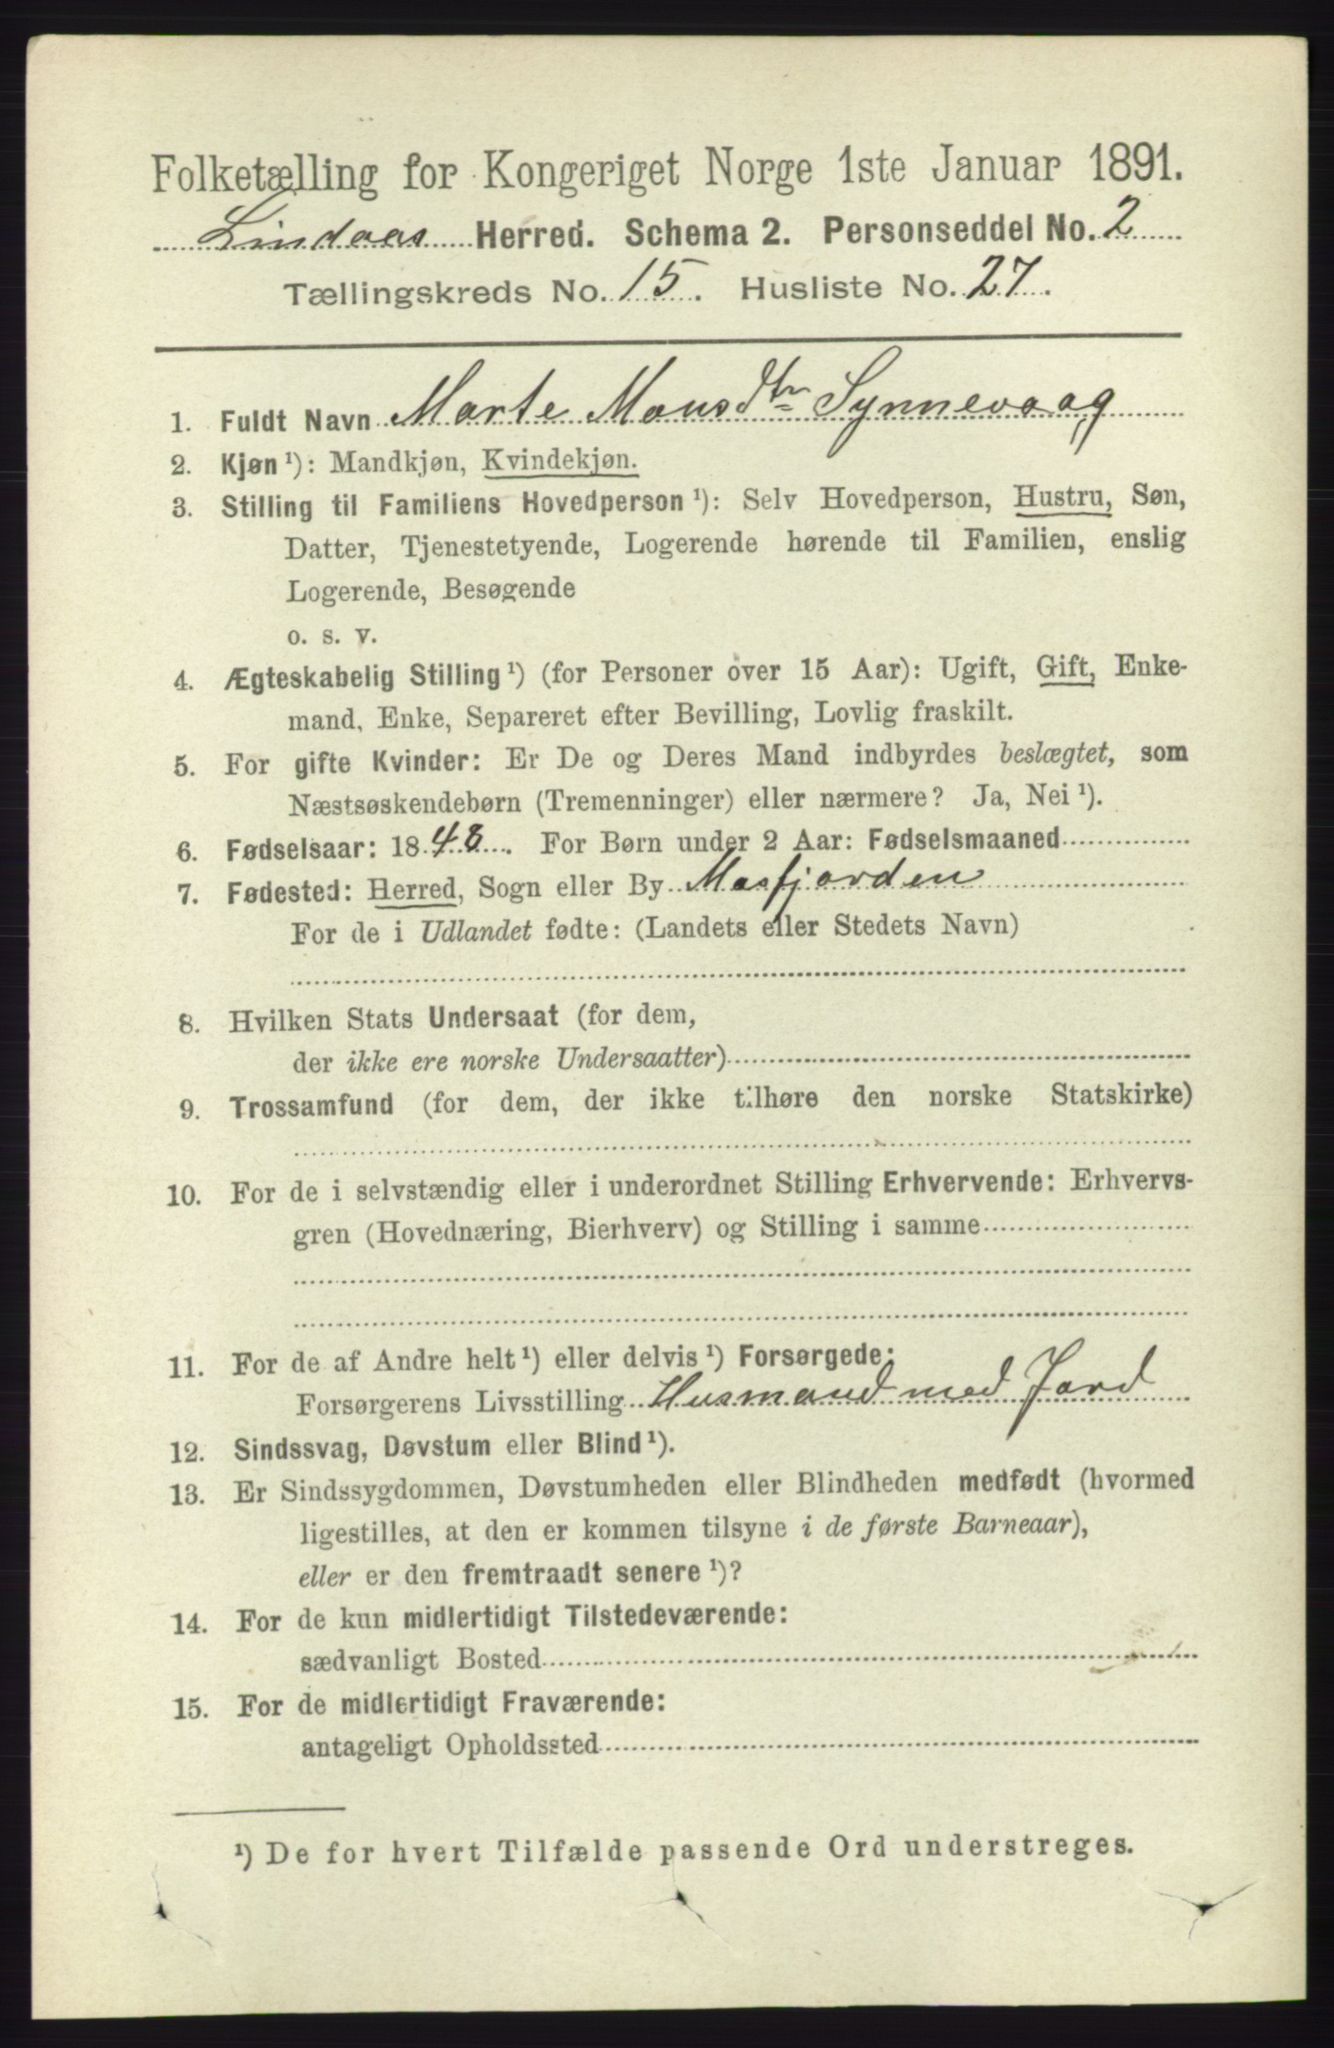 Folketælling for Kongeriget Norge 1ste Januar 1891.
Lindaas Herred. Schema 2. Personseddel No. 2
Tællingskreds No. 15. Husliste No. 27.
1. Fuldt Navn Marte Monsdtr Synnevaag
2. Kjøn ¹): Mandkjøn, Kvindekjøn.
3. Stilling til Familiens Hovedperson ¹): Selv Hovedperson, Hustru, Søn,
Datter, Tjenestetyende, Logerende hørende til Familien, enslig
Logerende, Besøgende
o. s. v.
4. Ægteskabelig Stilling ¹) (for Personer over 15 Aar): Ugift, Gift, Enke-
mand, Enke, Separeret efter Bevilling, Lovlig fraskilt.
5. For gifte Kvinder: Er De og Deres Mand indbyrdes beslægtet, som
Næstsøskendebørn (Tremenninger) eller nærmere? Ja, Nei ¹).
6. Fødselsaar: 1848. For Børn under 2 Aar: Fødselsmaaned
7. Fødested: Herred, Sogn eller By Masfjorden
For de i Udlandet fødte: (Landets eller Stedets Navn)
8. Hvilken Stats Undersaat (for dem,
der ikke ere norske Undersaatter)
9. Trossamfund (for dem, der ikke tilhøre den norske Statskirke)
10. For de i selvstændig eller i underordnet Stilling Erhvervende: Erhvervs-
gren (Hovednæring, Bierhverv) og Stilling i samme
11. For de af Andre helt ¹) eller delvis ¹) Forsørgede:
Forsørgerens Livsstilling Husmand med Jord
12. Sindssvag, Døvstum eller Blind ¹).
13. Er Sindssygdommen, Døvstumheden eller Blindheden medfødt (hvormed
ligestilles, at den er kommen tilsyne i de første Barneaar),
eller er den fremtraadt senere ¹)?
14. For de kun midlertidigt Tilstedeværende:
sædvanligt Bosted
15. For de midlertidigt Fraværende:
antageligt Opholdssted
¹) De for hvert Tilfælde passende Ord understreges.